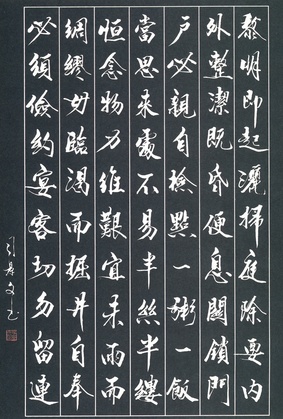 黎明即起灑掃庭除要内
外整潔既昏便息關鎖門
户必親自檢點一粥一飯
當思來處不易半絲半縷
恒念物力維艱宜未雨而
綢繆毋臨渴而掘井自奉
必須儉約宴客切勿留連